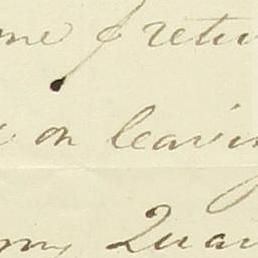 me & retu
on leavin
my Quar